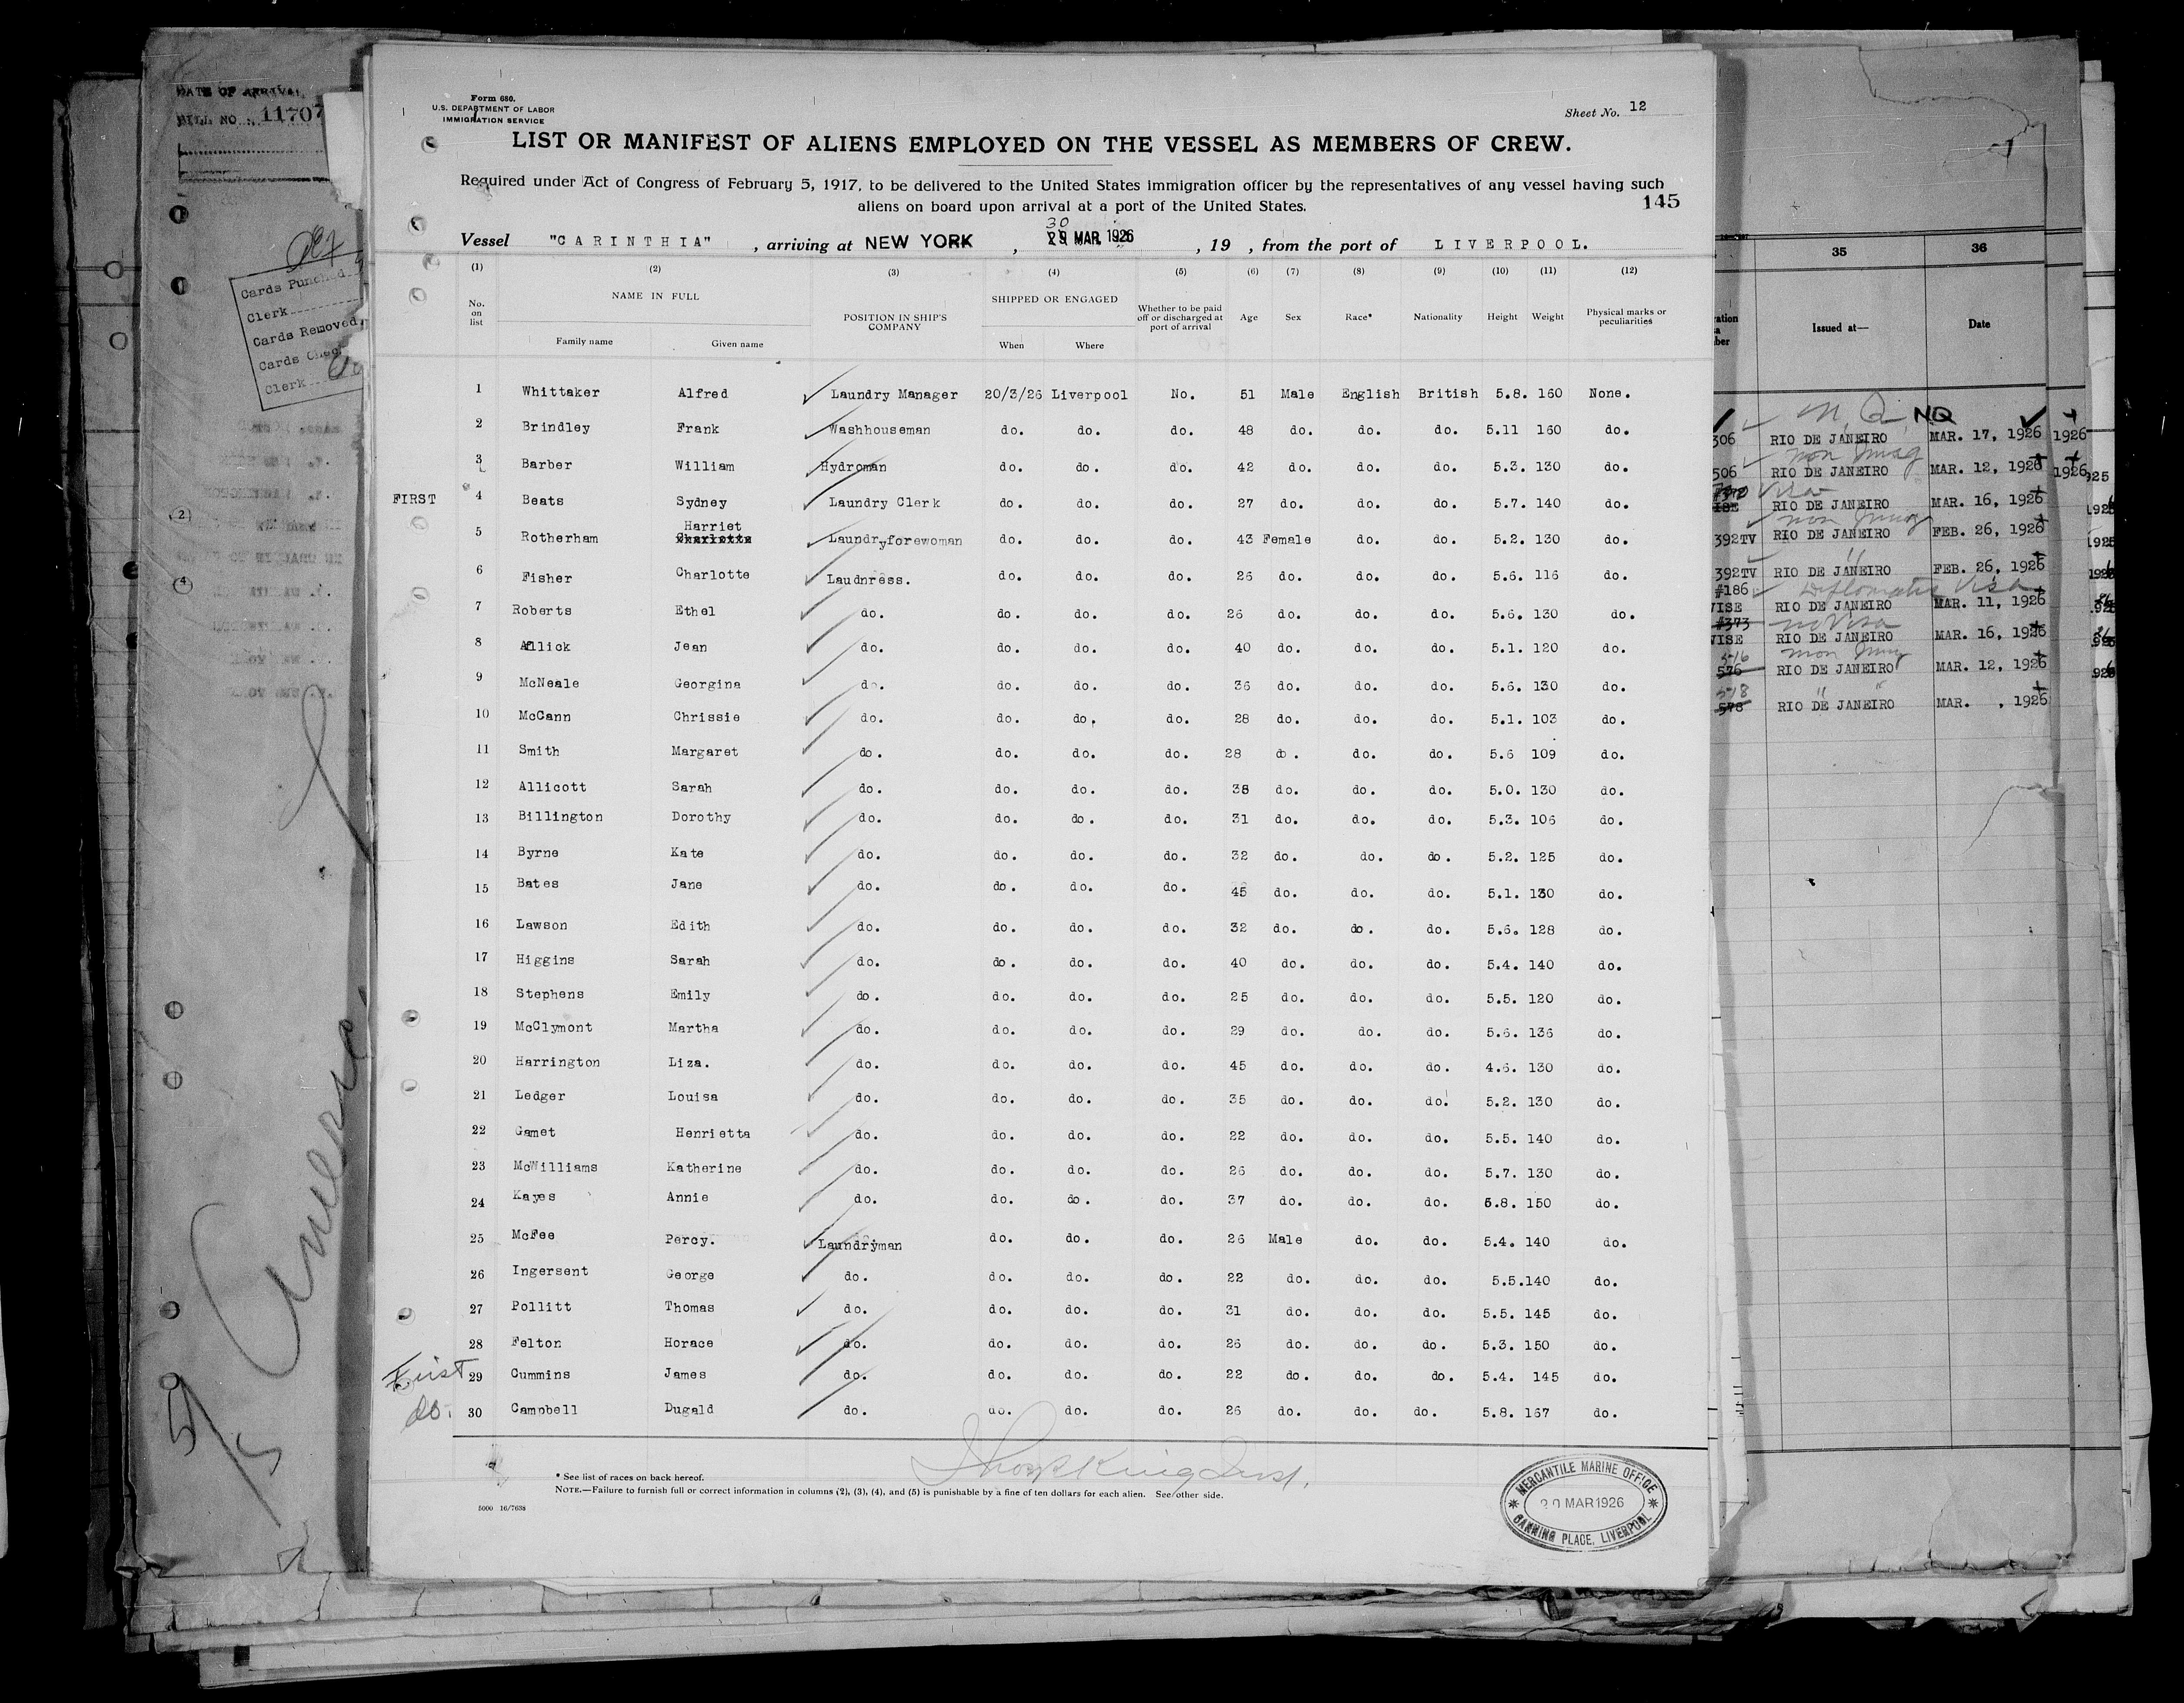 DATE OF ARRIVAL
BILL NO. 11707
Cards Punched
Clerk
Cards Removed
Cards
Clerk
Form 680.
U.S. DEPARTMENT OF LABOR
IMMIGRATION SERVICE
Sheet No. 12
LIST OR MANIFEST OF ALIENS EMPLOYED ON THE VESSEL AS MEMBERS OF CREW.
Required under Act of Congress of February 5, 1917, to be delivered to the United States immigration officer by the representatives of any vessel having such
aliens on board upon arrival at a port of the United States.
145
30
Vessel "CARINTHIA" , arriving at NEW YORK , 29 MAR. 1926 , 19 , from the port of LIVERPOOL.
(1) (2) (3) (4) (5) (6) (7) (8) (9) (10) (11) (12)
No. on list NAME IN FULL Family name Given name POSITION IN SHIP'S COMPANY SHIPPED OR ENGAGED When Where Whether to be paid off or discharged at port of arrival Age Sex Race* Nationality Height Weight Physical marks or peculiarities
1 Whittaker Alfred Laundry Manager 20/3/26 Liverpool No. 51 Male English British 5.8. 160 None.
2 Brindley Frank Washhouseman do. do. do. 48 do. do. do. 5.11 160 do.
3 Barber William Hydroman do. do. do. 42 do. do. do. 5.3. 130 do.
FIRST 4 Beats Sydney Laundry Clerk do. do. do. 27 do. do. do. 5.7. 140 do.
Harriet
5 Rotherham Charlotte Laundryforewoman do. do. do. 43 Female do. do. 5.2. 130 do.
6 Fisher Charlotte Laudnress. do. do. do. 26 do. do. do. 5.6. 116 do.
7 Roberts Ethel do. do. do. do. 26 do. do. do. 5.6. 130 do.
8 Allick Jean do. do. do. do. 40 do. do. do. 5.1. 120 do.
9 McNeale Georgina do. do. do. do. 36 do. do. do. 5.6. 130 do.
10 McCann Chrissie do. do. do. do. 28 do. do. do. 5.1. 103 do.
11 Smith Margaret do. do. do. do. 28 do. do. do. 5.6 109 do.
12 Allicott Sarah do. do. do. do. 38 do. do. do. 5.0. 130 do.
13 Billington Dorothy do. do. do. do. 31 do. do. do. 5.3. 106 do.
14 Byrne Kate do. do. do. do. 32 do. do. do. 5.2. 125 do.
15 Bates Jane do. do. do. do. 45 do. do. do. 5.1. 130 do.
16 Lawson Edith do. do. do. do. 32 do. do. do. 5.6. 128 do.
17 Higgins Sarah do. do. do. do. 40 do. do. do. 5.4. 140 do.
18 Stephens Emily do. do. do. do. 25 do. do. do. 5.5. 120 do.
19 McClymont Martha do. do. do. do. 29 do. do. do. 5.6. 136 do.
20 Harrington Liza. do. do. do. do. 45 do. do. do. 4.6. 130 do.
21 Ledger Louisa do. do. do. do. 35 do. do. do. 5.2. 130 do.
22 Gamet Henrietta do. do. do. do. 22 do. do. do. 5.5. 140 do.
23 McWilliams Katherine do. do. do. do. 26 do. do. do. 5.7. 130 do.
24 Kayes Annie do. do. do. do. 37 do. do. do. 5.8. 150 do.
25 McFee Percy. Laundryman do. do. do. 26 Male do. do. 5.4. 140 do.
26 Ingersent George do. do. do. do. 22 do. do. do. 5.5.140 do.
27 Pollitt Thomas do. do. do. do. 31 do. do. do. 5.5. 145 do.
28 Felton Horace do. do. do. do. 26 do. do. do. 5.3. 150 do.
First 29 Cummins James do. do. do. do. 22 do. do. do. 5.4. 145 do.
do. 30 Campbell Dugald do. do. do. do. 26 do. do. do. 5.8. 167 do.
* See list of races on back hereof.
NOTE.—Failure to furnish full or correct information in columns (2), (3), (4), and (5) is punishable by a fine of ten dollars for each alien. See other side.
5000 16/7638
MERCANTILE MARINE OFFICE
20 MAR 1926
CANNING PLACE, LIVERPOOL
35 36
Issued at— Date
NQ
306 RIO DE JANEIRO MAR. 17, 1926 1926
non Immig
506 RIO DE JANEIRO MAR. 12, 1926 1926
Visa
RIO DE JANEIRO MAR. 16, 1926
non Immig
392TV RIO DE JANEIRO FEB. 26, 1926
"
392TV RIO DE JANEIRO FEB. 26, 1926
#186 Diplomatic Visa
VISE RIO DE JANEIRO MAR. 11, 1926
#373 no Visa
VISE RIO DE JANEIRO MAR. 16, 1926
516 non Immig
576 RIO DE JANEIRO MAR. 12, 1926
518 " "
578 RIO DE JANEIRO MAR. , 1926